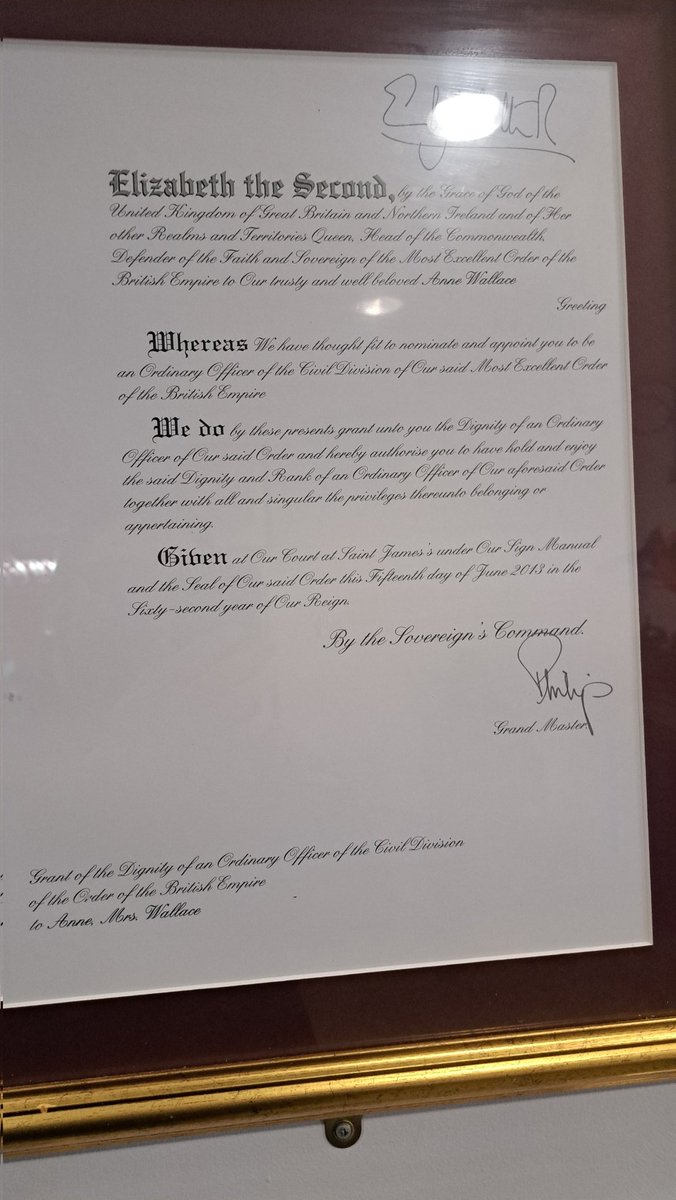 Elizabeth R
Elizabeth the Second, by the Grace of God of the
United Kingdom of Great Britain and Northern Ireland and of Her
other Realms and Territories Queen, Head of the Commonwealth,
Defender of the Faith and Sovereign of the Most Excellent Order of the
British Empire to Our trusty and well beloved Anne Wallace
Greeting
Whereas We have thought fit to nominate and appoint you to be
an Ordinary Officer of the Civil Division of Our said Most Excellent Order
of the British Empire
We do by these presents grant unto you the Dignity of an Ordinary
Officer of Our said Order and hereby authorise you to have hold and enjoy
the said Dignity and Rank of an Ordinary Officer of Our aforesaid Order
together with all and singular the privileges thereunto belonging or
appertaining.
Given at Our Court at Saint James's under Our Sign Manual
and the Seal of Our said Order this Fifteenth day of June 2013 in the
Sixty-second year of Our Reign.
By the Sovereign's Command.
Philip
Grand Master.
Grant of the Dignity of an Ordinary Officer of the Civil Division
of the Order of the British Empire
to Anne, Mrs. Wallace